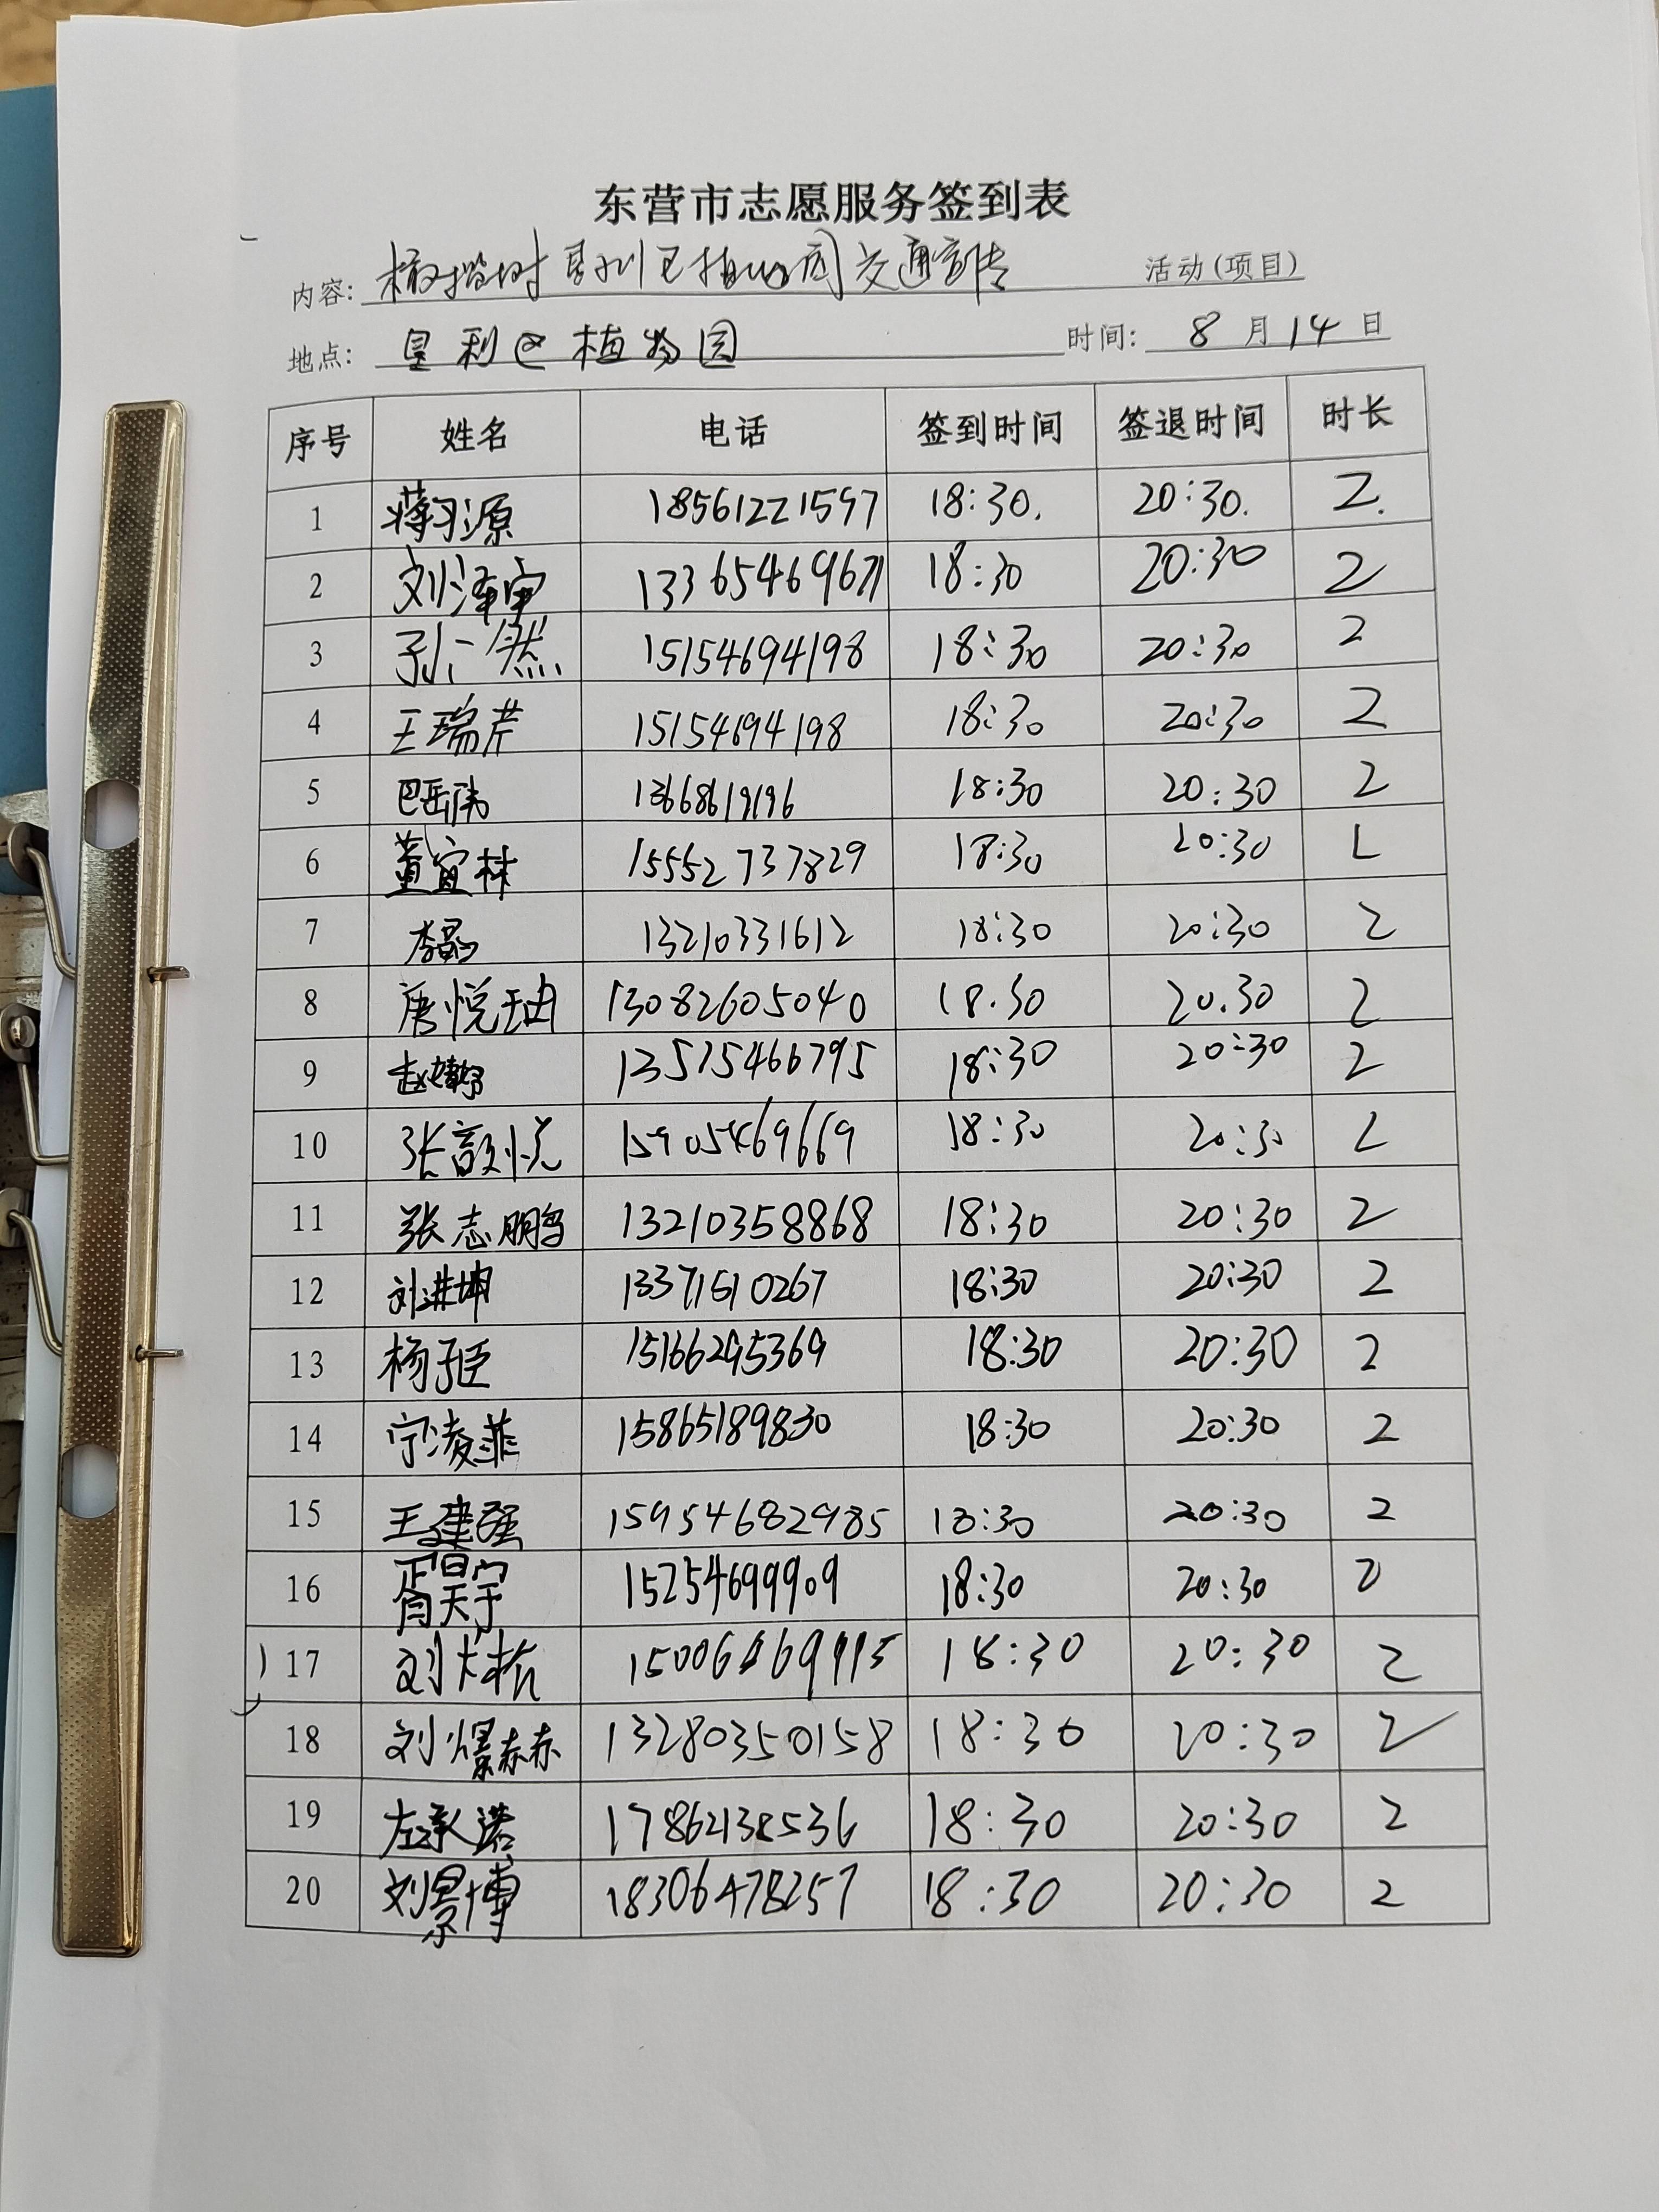 东营市志愿服务签到表
内容: 橄榄树垦利区植物园交通宣传 活动(项目)
地点: 垦利区植物园 时间: 8月14日
序号 姓名 电话 签到时间 签退时间 时长
1 蒋羽源 18561221597 18:30. 20:30. 2.
2 刘泽宇 13365469671 18:30 20:30 2
3 孙一然 15154694198 18:30 20:30 2
4 王瑞芹 15154694198 18:30 20:30 2
5 巴岳伟 13668619196 18:30 20:30 2
6 董宜林 15552737829 18:30 20:30 2
7 李 13210331612 18:30 20:30 2
8 唐悦 13082605040 18.30 20.30 2
9 赵 13515466795 18:30 20:30 2
10 张歆悦 15905469669 18:30 20:30 2
11 张志鹏 13210358868 18:30 20:30 2
12 刘洪坤 13371510267 18:30 20:30 2
13 杨子臣 15166295369 18:30 20:30 2
14 宁凌菲 15865189830 18:30 20:30 2
15 王建强 15954682985 18:30 20:30 2
16 胥昊宇 15254699909 18:30 20:30 2
17 刘 18:30 20:30 2
18 刘爆赫 13280350158 18:30 20:30 2
19 左承诺 17862138536 18:30 20:30 2
20 刘景博 18306478257 18:30 20:30 2